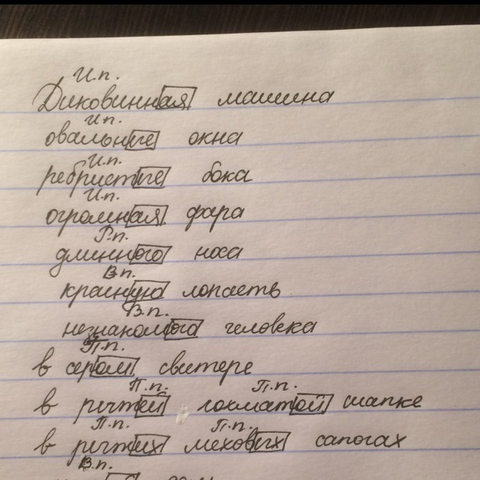 И.п.
Диковинная машина
И.п.
овальные окна
И.п.
ребристые бока
И.п.
огромная фара
Р.п.
длинного носа
В.п.
красную лопасть
В.п.
незнакомого человека
П.п.
в сером свитере
П.п. П.п.
в рыжей лохматой шапке
П.п. П.п.
в рыжих меховых сапогах
В.п.